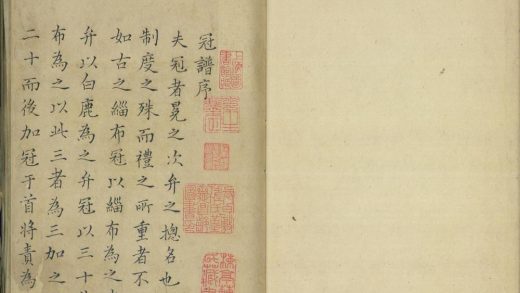 冠譜序
夫冠者冕之次弁之摠名也
制度之殊而禮之所重者不
如古之緇布冠以緇布為之
弁以白鹿為之弁冠以三十
布為之以此三者為三加之
二十而後加冠于首將責為